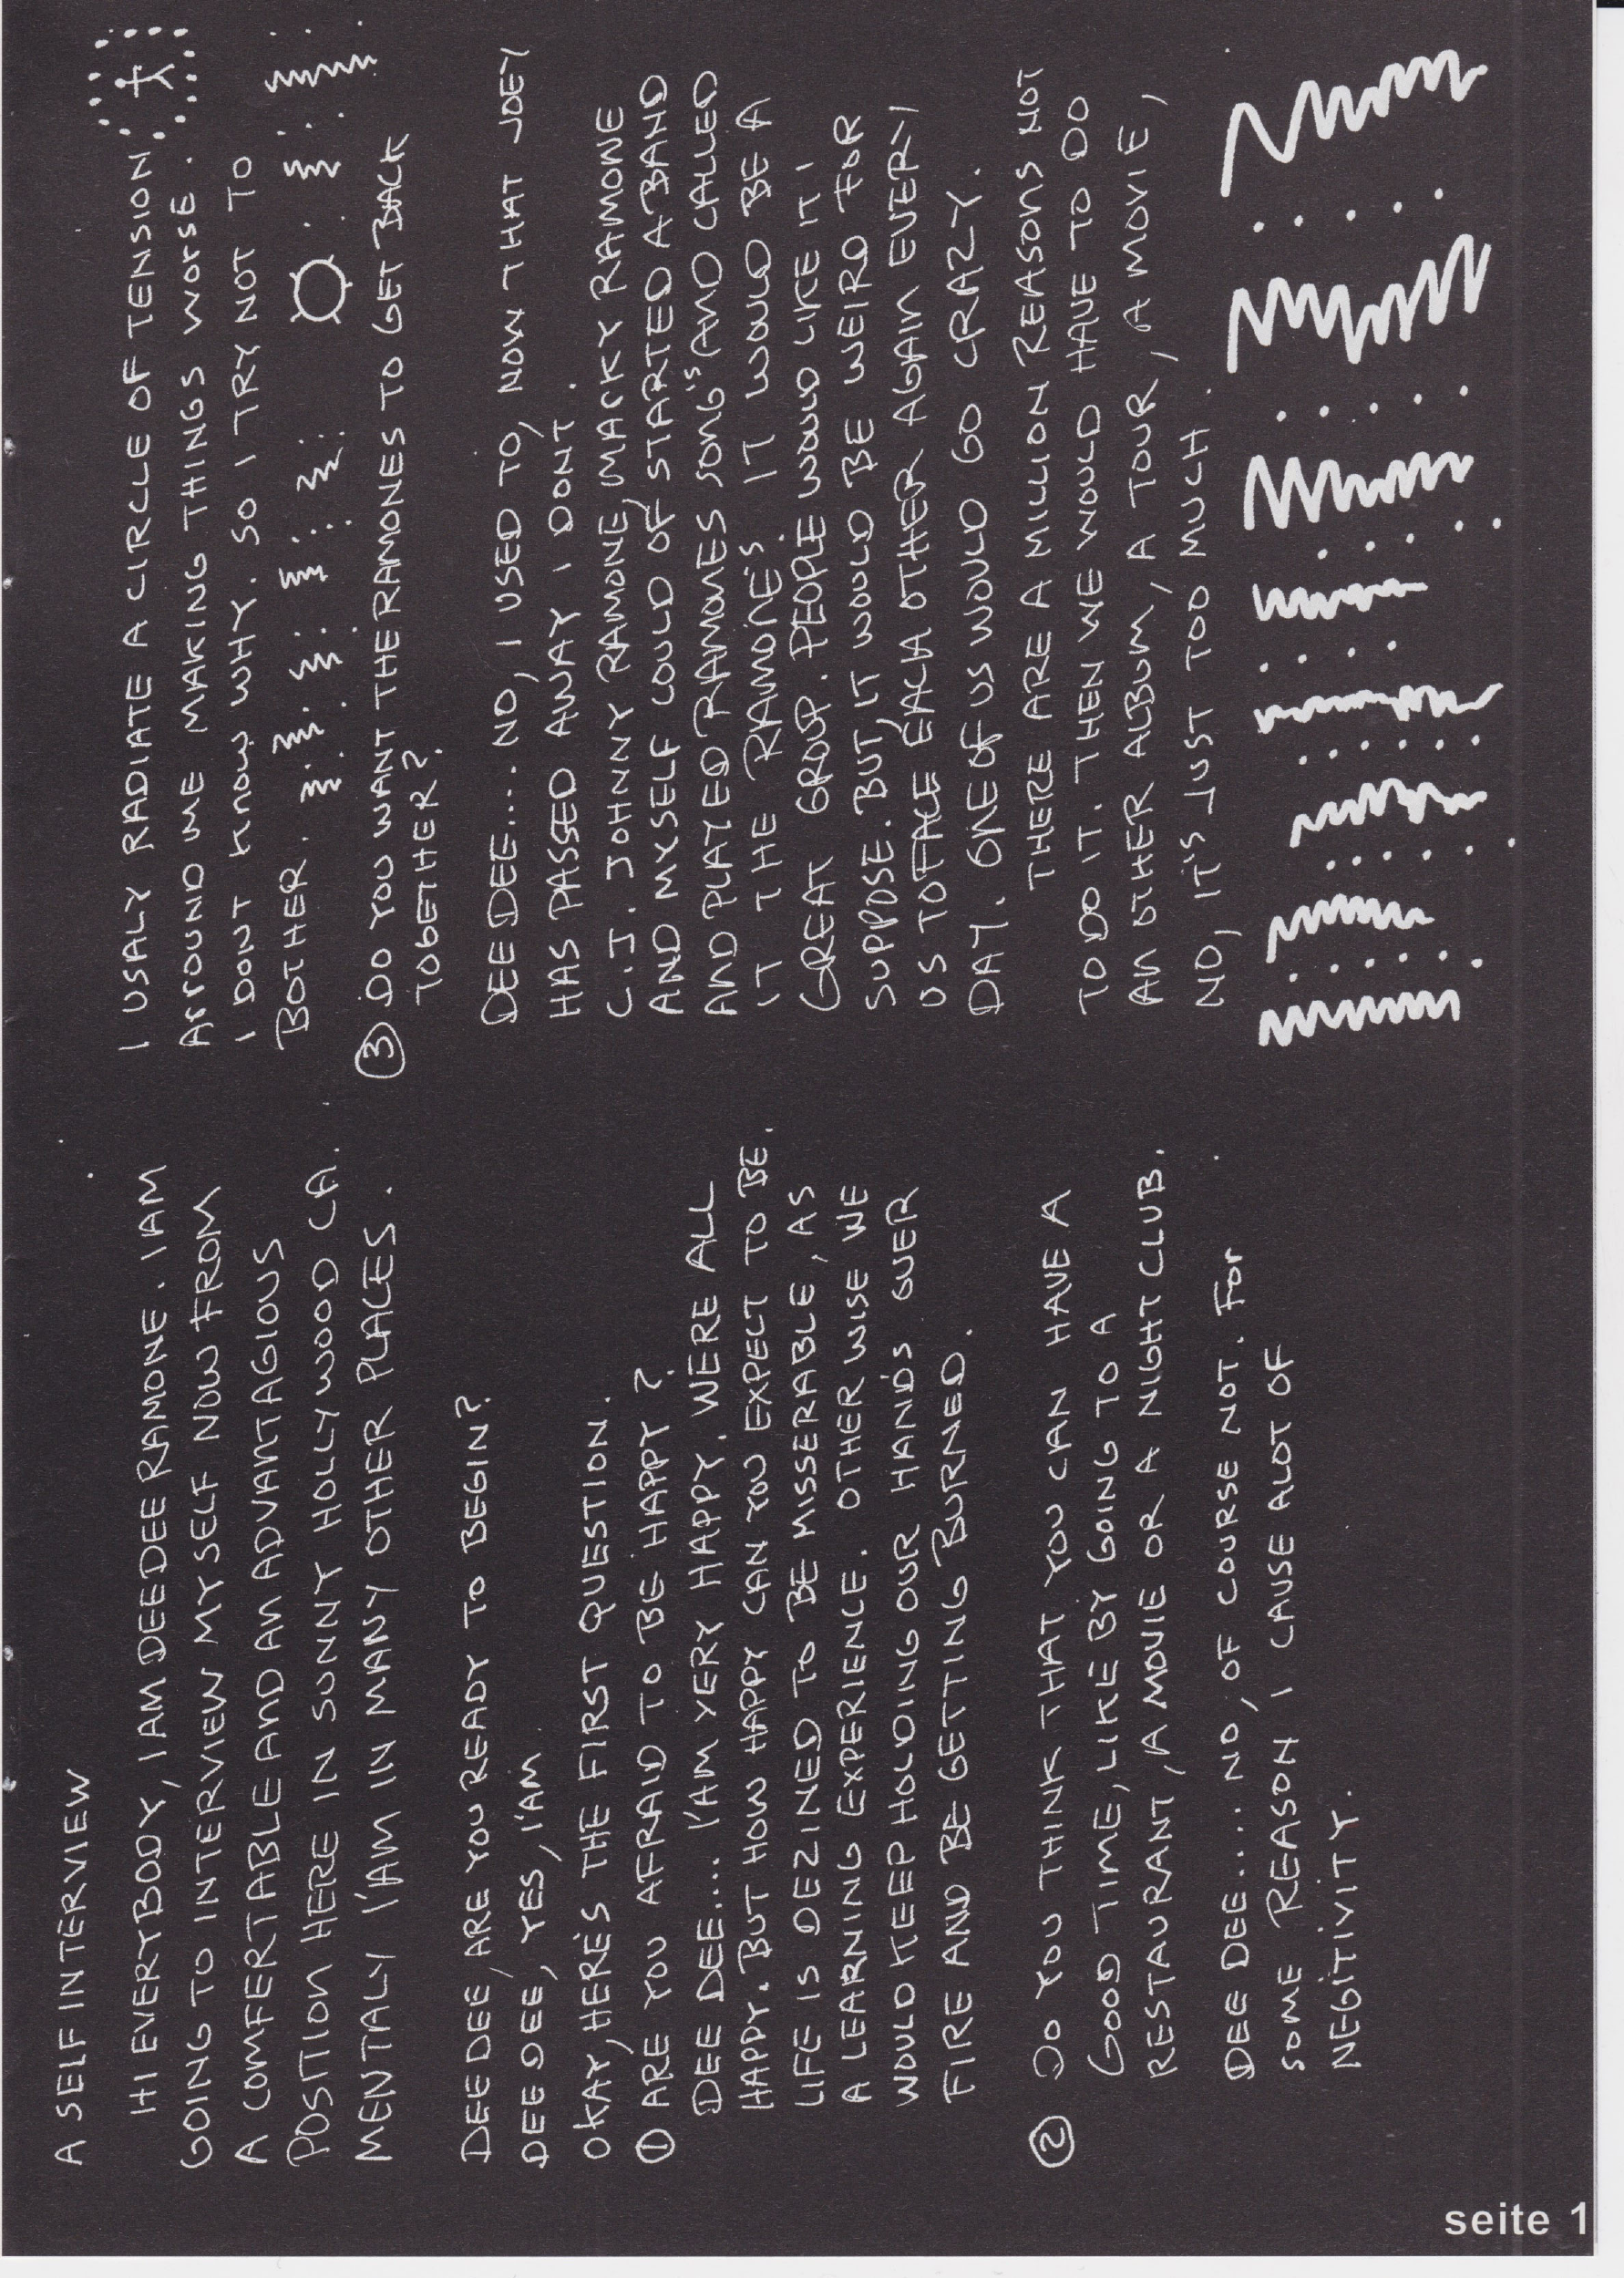 A SELF INTERVIEW
HI EVERYBODY, I AM DEE DEE RAMONE. I AM
GOING TO INTERVIEW MYSELF NOW FROM
A COMFERTABLE AND AN ADVANTAGIOUS
POSITION HERE IN SUNNY HOLLYWOOD CA.
MENTALY I'AM IN MANY OTHER PLACES.
DEE DEE, ARE YOU READY TO BEGIN?
DEE DEE, YES, I'AM
OKAY, HERE'S THE FIRST QUESTION.
① ARE YOU AFRAID TO BE HAPPY?
DEE DEE.... I'AM VERY HAPPY. WERE ALL
HAPPY. BUT HOW HAPPY CAN YOU EXPECT TO BE.
LIFE IS DEZINED TO BE MISSERABLE, AS
A LEARNING EXPERIENCE. OTHER WISE WE
WOULD KEEP HOLDING OUR HANDS OUER
FIRE AND BE GETTING BURNED.
② DO YOU THINK THAT YOU CAN HAVE A
GOOD TIME, LIKE BY GOING TO A
RESTAURANT, A MOVIE OR A NIGHT CLUB.
DEE DEE.... NO, OF COURSE NOT. FOR
SOME REASON I CAUSE ALOT OF
NEGITIVITY.
I USALY RADIATE A CIRCLE OF TENSION
ARROUND ME MAKING THINGS WORSE.
I DONT KNOW WHY. SO I TRY NOT TO
BOTHER.
③ DO YOU WANT THE RAMONES TO GET BACK
TOGETHER?
DEE DEE.... NO, I USED TO, NOW THAT JOEY
HAS PASSED AWAY I DONT.
C.J. JOHNNY RAMONE, MARKY RAMONE
AND MYSELF COULD OF STARTED A BAND
AND PLAYED RAMONES SONG'S AND CALLED
IT THE RAMONE'S. IT WOULD BE A
GREAT GROUP. PEOPLE WOULD LIKE IT I
SUPPOSE. BUT, IT WOULD BE WEIRD FOR
US TO FACE EACH OTHER AGAIN EVERY
DAY. ONE OF US WOULD GO CRAZY.
THERE ARE A MILLION REASONS NOT
TO DO IT. THEN WE WOULD HAVE TO DO
AN OTHER ALBUM, A TOUR, A MOVIE,
NO, IT'S JUST TOO MUCH.
seite 1